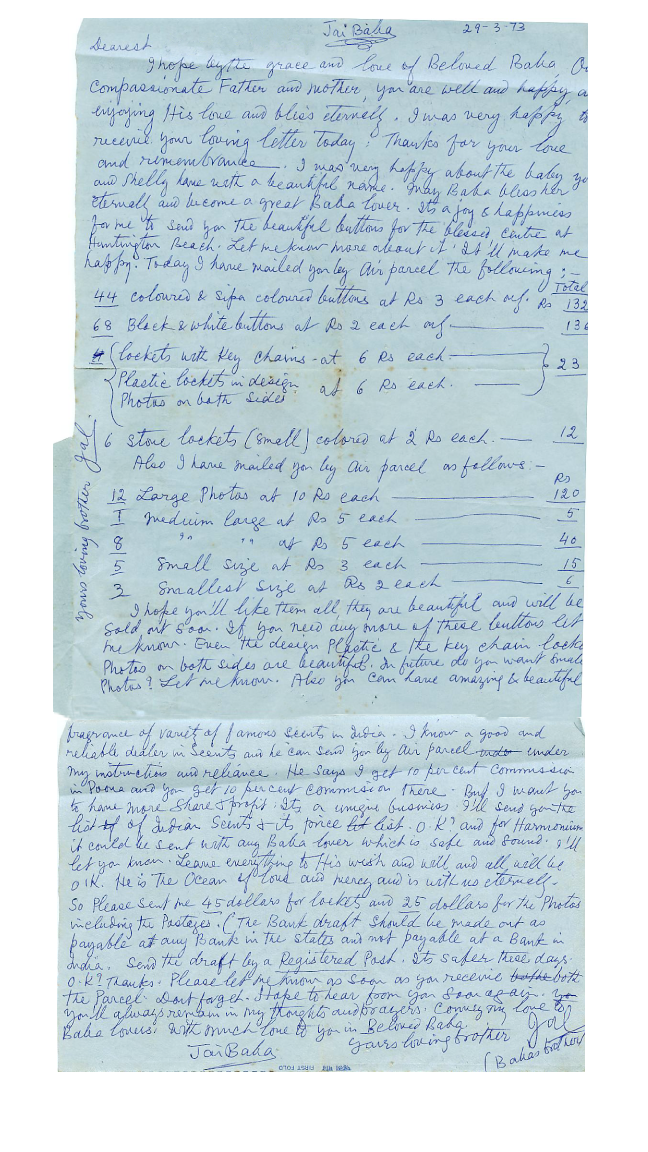 Jai Baba 29-3-73
Dearest
I hope by the grace and love of Beloved Baba Ou
compassionate Father and mother, you are well and happy, a
enjoying His love and bliss eternally. I was very happy to
receive your loving letter today! Thanks for your love
and remembrance. I was very happy about the baby yo
and Shelly have with a beautiful name. May Baba bless her
eternall and become a great Baba lover. Its a joy & happiness
for me to send you the beautiful buttons for the blessed centre at
Huntington Beach. Let me know more about it! It'll make me
happy. Today I have mailed you by Air parcel the following :-
Total
44 coloured & Sipa coloured buttons at Rs 3 each Rs 132
68 Black & white buttons at Rs 2 each 136
lockets with Key chains - at 6 Rs each 23
Plastic lockets in design at 6 Rs each.
Photos on both sides
6 Stone lockets (small) colored at 2 Rs each. 12
Also I have mailed you by air parcel as follows:-
Rs
12 Large Photos at 10 Rs each 120
1 medium large at Rs 5 each 5
8 " " at Rs 5 each 40
5 Small size at Rs 3 each 15
3 Smallest Size at Rs 2 each 6
I hope you'll like them all they are beautiful and will be
sold out soon. If you need any more of these buttons let
me know. Even the design Plastic & the key chain locke
Photos on both sides are beautiful. In future do you want small
Photos? Let me know. Also you can have amazing & beautiful
yours loving brother Jal.
fragrance of variet of famous Scents in India. I know a good and
reliable dealer in Scents and he can send you by Air parcel under
my instruction and reliance. He says I get 10 per cent Commission
in Poona and you get 10 per cent commission there. But I want you
to have more Share & profit. Its a unique business. I'll send you the
list of of Indian Scents & its price list. O.K? and for Harmonium
it could be sent with any Baba lover which is safe and sound. I'll
let you know. Leave everything to His wish and will and all will be
O.K. He is the Ocean of love and mercy and is with us eternally.
So Please sent me 45 dollars for lockets and 25 dollars for the Photos
including the Postages. (The Bank draft should be made out as
payable at any Bank in the States and not payable at a Bank in
India. Send the draft by a Registered Post. Its safer these days.
O.K? Thanks. Please let me know as soon as you receive both
the Parcel. Dont forget. Hope to hear from you soon again.
you'll always remain in my thoughts and prayers. Convey my love to
Baba lovers. With much love to you in Beloved Baba.
Jai Baba yours loving brother Jal
(Babas brother
FIRST FOLD